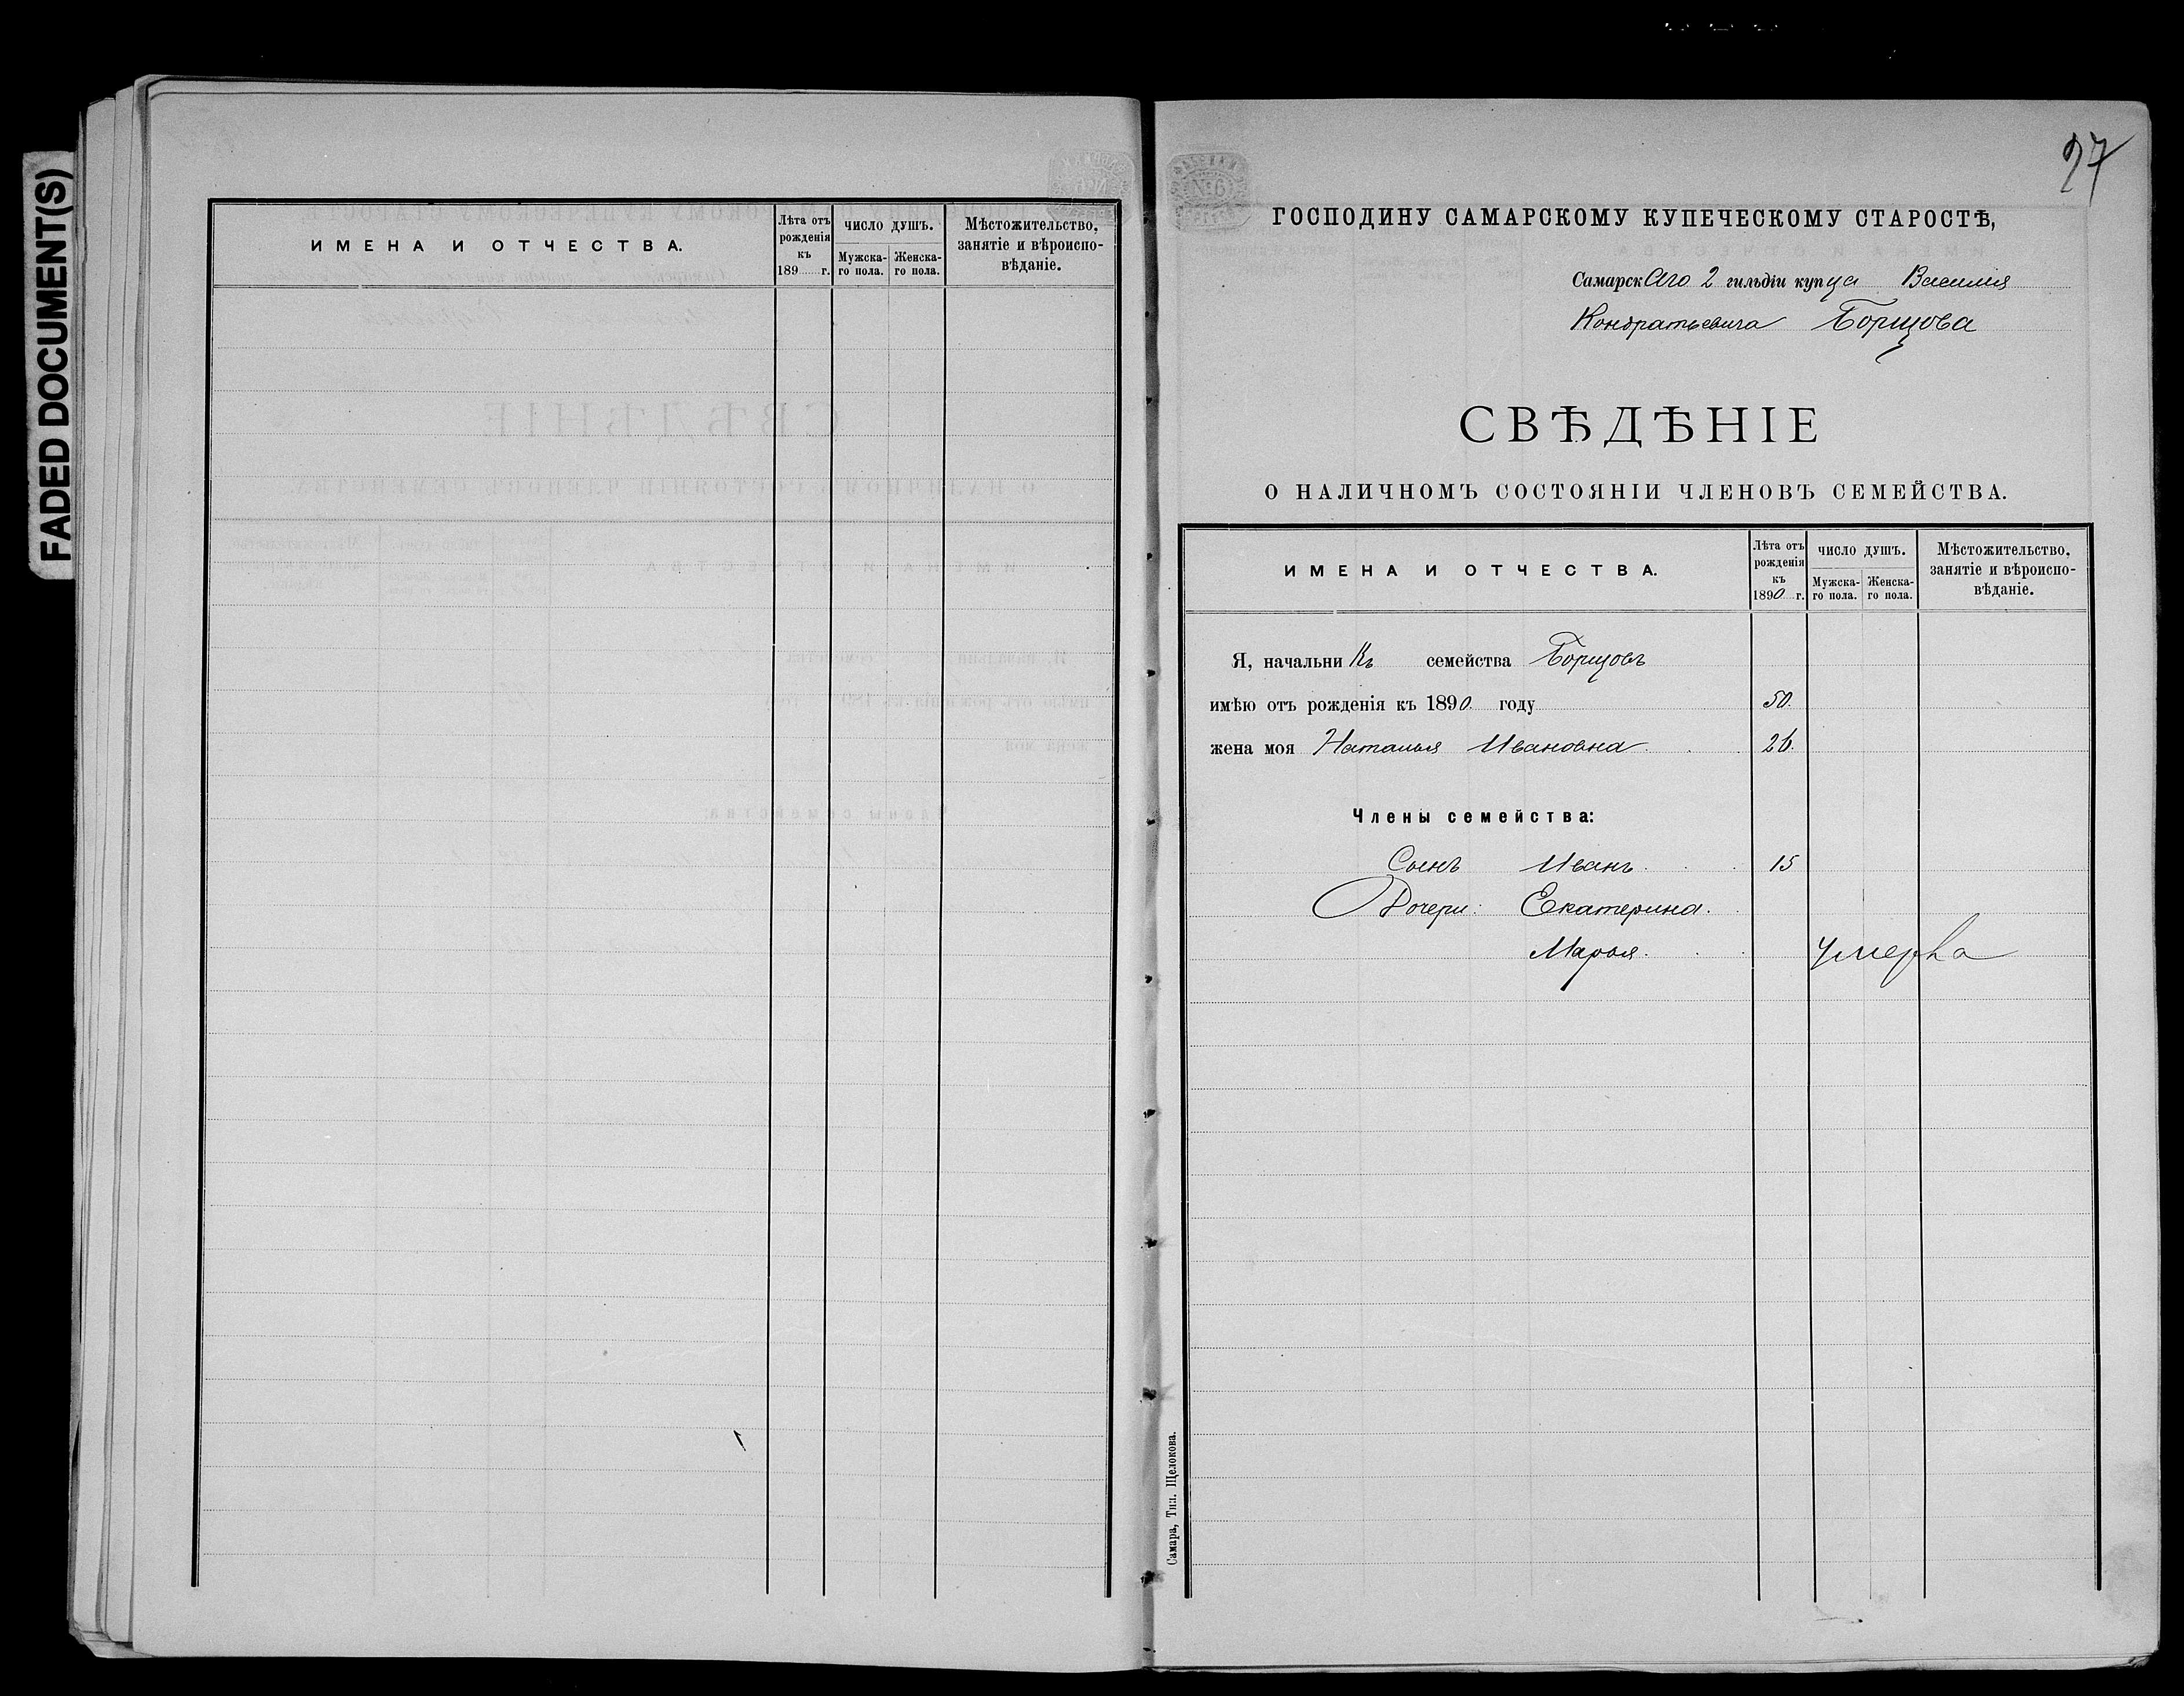 FADED DOCUMENT(S)
ИМЕНА И ОТЧЕСТВА.
Лѣта отъ рожденія къ 189 г.
ЧИСЛО ДУШЪ.
Мужска-го пола.
Женска-го пола.
Мѣстожительство, занятіе и вѣроиспо-вѣданіе.
97
№ 6
ГОСПОДИНУ САМАРСКОМУ КУПЕЧЕСКОМУ СТАРОСТѢ,
Самарскаго 2 гильдіи купца Василия
Кондратьевича Борщова
СВѢДѢНІЕ
О НАЛИЧНОМЪ СОСТОЯНІИ ЧЛЕНОВЪ СЕМЕЙСТВА.
ИМЕНА И ОТЧЕСТВА.
Лѣта отъ рожденія къ 1890 г.
ЧИСЛО ДУШЪ.
Мужска-го пола.
Женска-го пола.
Мѣстожительство, занятіе и вѣроиспо-вѣданіе.
Я, начальникъ семейства Борщовъ
имѣю отъ рожденія къ 1890 году 50.
жена моя Наталья Ивановна 26.
Члены семейства:
Сынъ Иванъ 15
Дочери: Екатерина.
Марья. умерла
Самара, Тип. Щелокова.